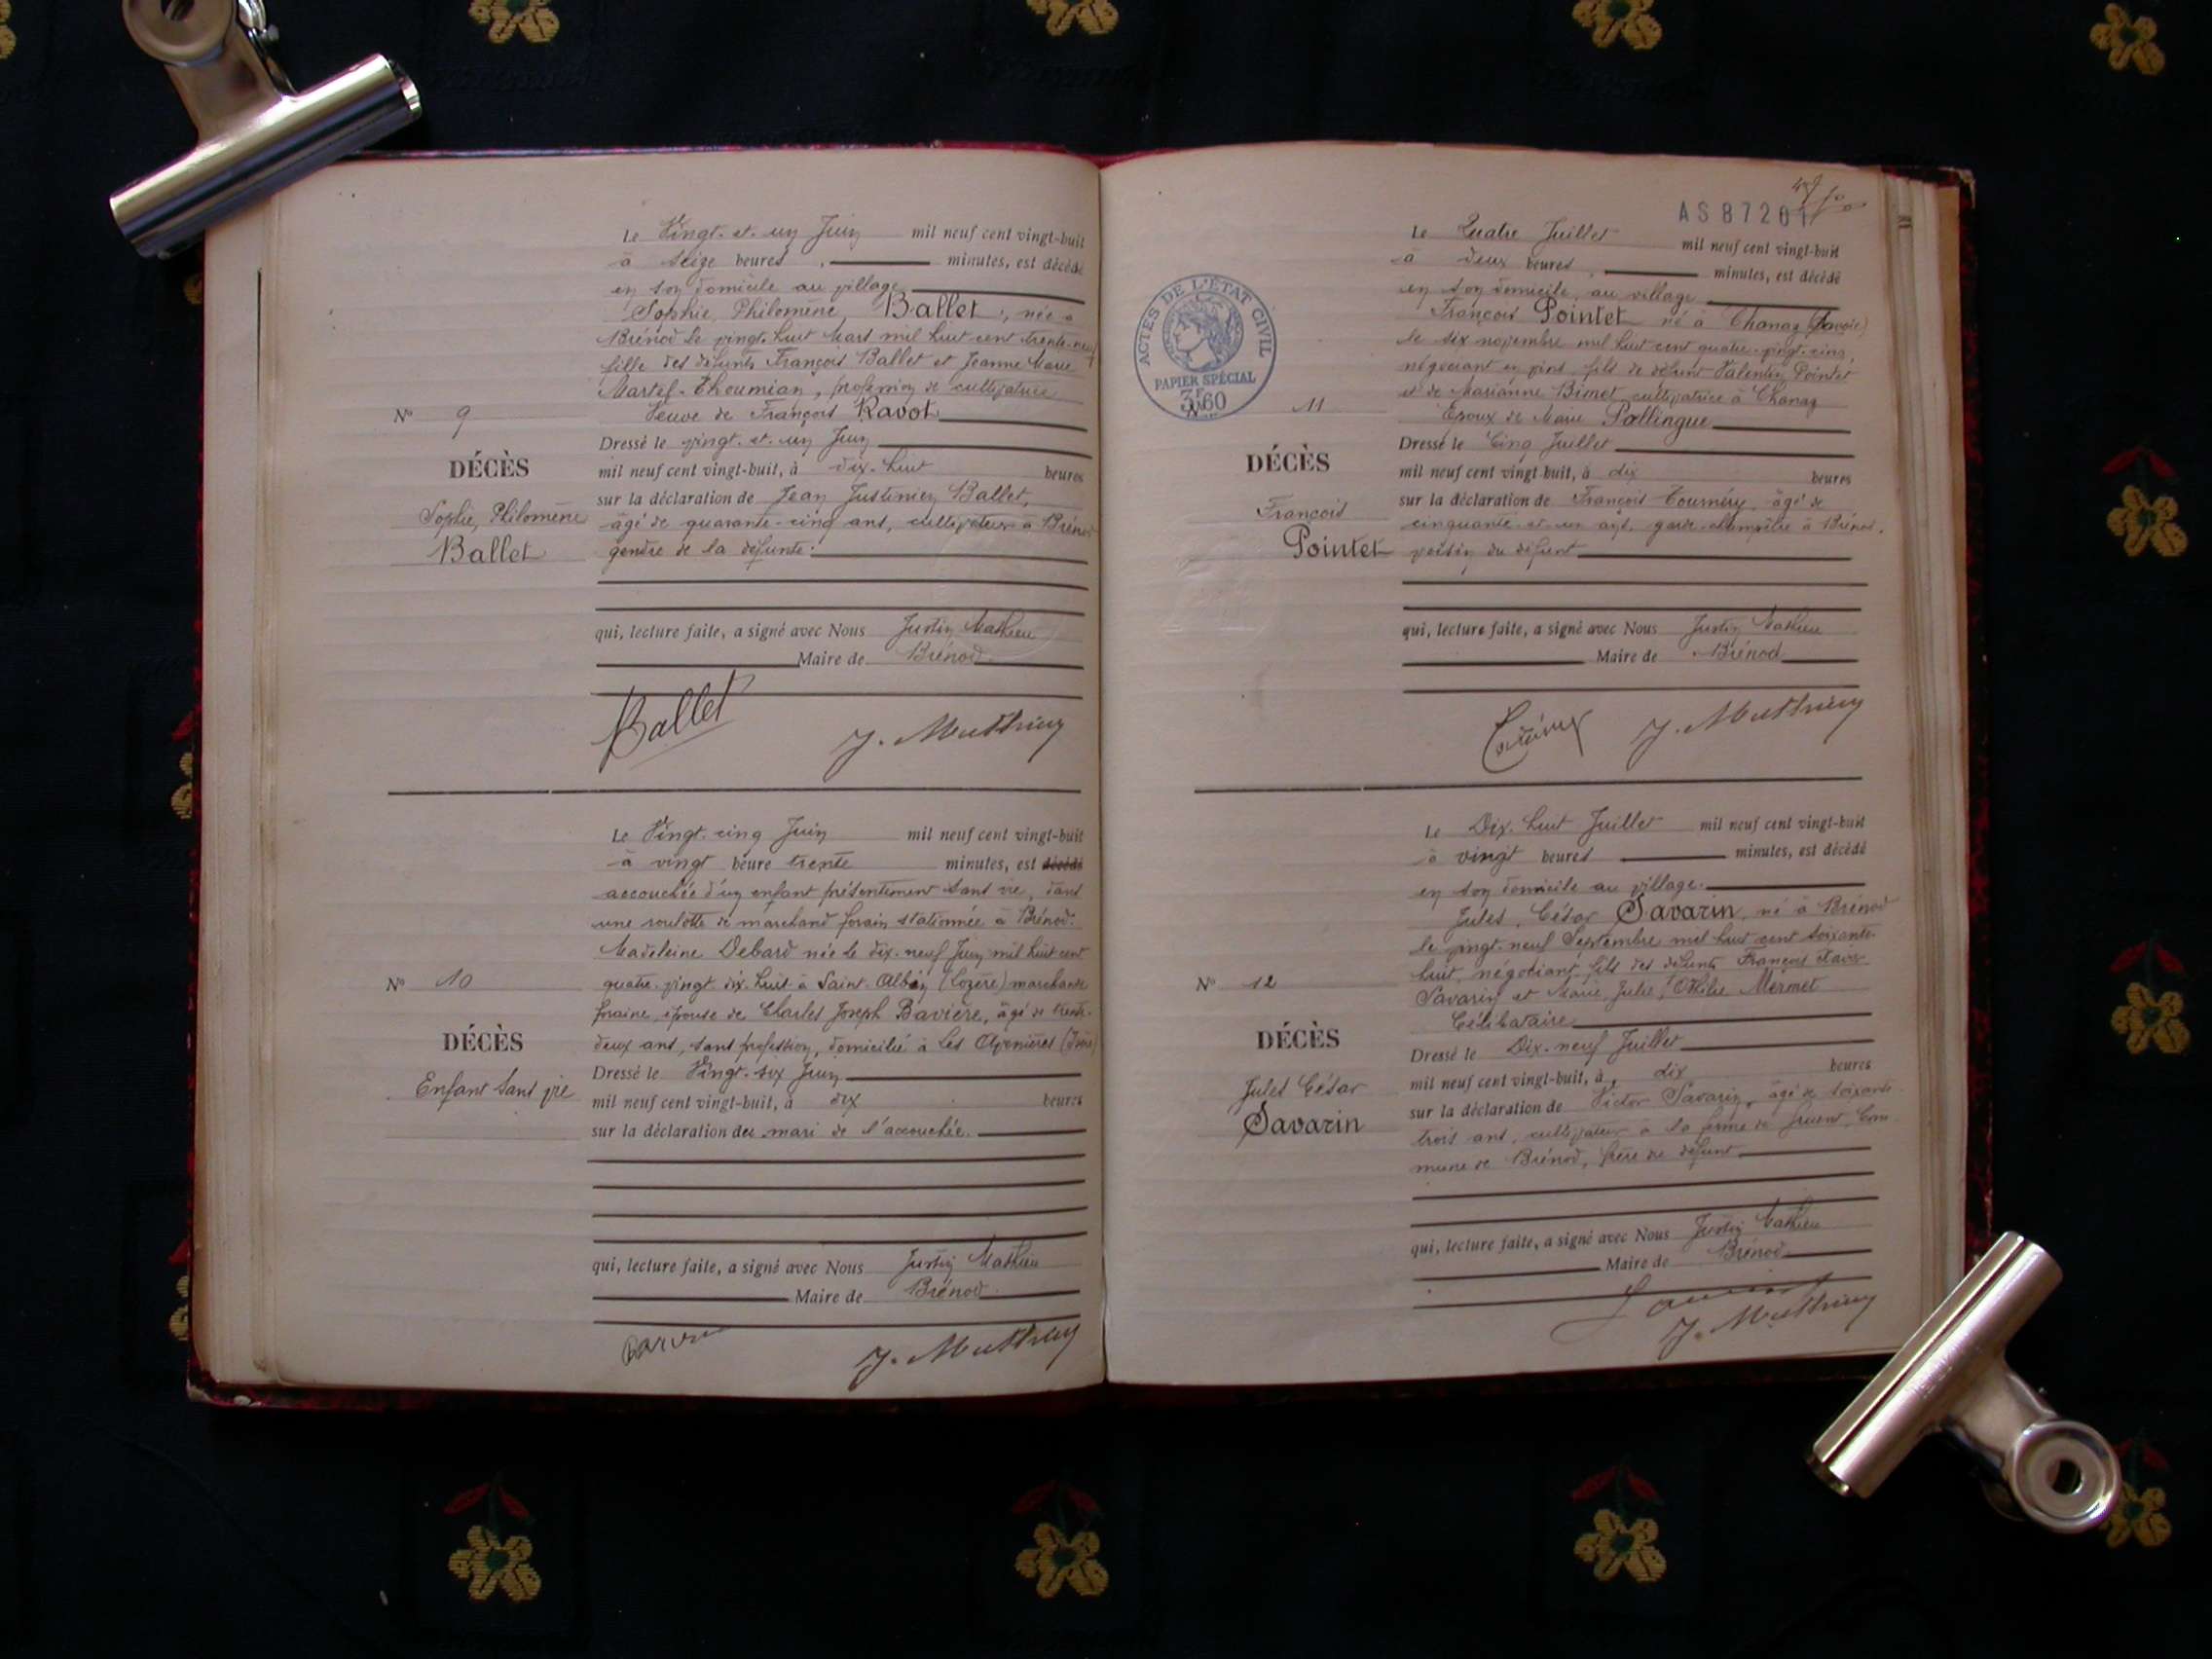 Le Vingt-et-un Juin mil neuf cent vingt-huit
à seize heures minutes, est décédé
en son domicile au village
Sophie, Philomène, Ballet, née à
Brénod le vingt-huit Mars mil huit cent trente-neuf
fille des défunts François Ballet et Jeanne Marie
Martel-Thoumian, profession de cultivatrice
Veuve de François Ravot
N° 9
DÉCÈS
Sophie, Philomène
Ballet
Dressé le vingt-et-un Juin
mil neuf cent vingt-huit, à dix-huit heures
sur la déclaration de Jean Justinien Ballet,
âgé de quarante-cinq ans, cultivateur à Brénod
gendre de la défunte.
qui, lecture faite, a signé avec Nous Justin Mathieu
Maire de Brénod
Ballet J. Mathieu
Le Vingt-cinq Juin mil neuf cent vingt-huit
à vingt heure trente minutes, est décédé
accouchée d'un enfant présentement sans vie, dans
une roulotte de marchand forain stationnée à Brénod.
Madeleine Debard née le dix-neuf Juin mil huit cent
quatre-vingt dix-huit à Saint-Albin (Lozère) marchande
foraine, épouse de Charles Joseph Bavière, âgé de trente-
deux ans, sans profession, domicilié à Les Avenières (Isère)
N° 10
DÉCÈS
Enfant sans vie
Dressé le Vingt-six Juin
mil neuf cent vingt-huit, à dix heures
sur la déclaration du mari de l'accouchée.
qui, lecture faite, a signé avec Nous Justin Mathieu
Maire de Brénod
J. Mathieu
AS87201
ACTES DE L'ÉTAT CIVIL
PAPIER SPÉCIAL
3F60
Le Quatre Juillet mil neuf cent vingt-huit
à deux heures minutes, est décédé
en son domicile, au village
François Pointet né à Chanaz (Savoie)
le six novembre mil huit cent quatre-vingt-cinq,
négociant en vins, fils de défunt Valentin Pointet
et de Marianne Bimet cultivatrice à Chanaz
Époux de Marie Pollingue
N° 11
DÉCÈS
François
Pointet
Dressé le Cinq Juillet
mil neuf cent vingt huit, à dix heures
sur la déclaration de François Tournéry, âgé de
cinquante-et-un ans, garde-champêtre à Brénod,
voisin du défunt
qui, lecture faite, a signé avec Nous Justin Mathieu
Maire de Brénod
J. Mathieu
Le Dix-huit Juillet mil neuf cent vingt-huit
à vingt heures minutes, est décédé
en son domicile au village.
Jules, César Savarin, né à Brénod
le vingt-neuf Septembre mil huit cent soixante-
huit, négociant, fils des défunts François Xavier
Savarin et Marie, Julie, Othilie Mermet
Célibataire
N° 12
DÉCÈS
Jules César
Savarin
Dressé le Dix-neuf Juillet
mil neuf cent vingt-huit, à dix heures
sur la déclaration de Victor Savarin, âgé de soixante-
trois ans, cultivateur à la ferme de Com-
mune de Brénod, frère du défunt
qui, lecture faite, a signé avec Nous Justin Mathieu
Maire de Brénod
Savarin
J. Mathieu